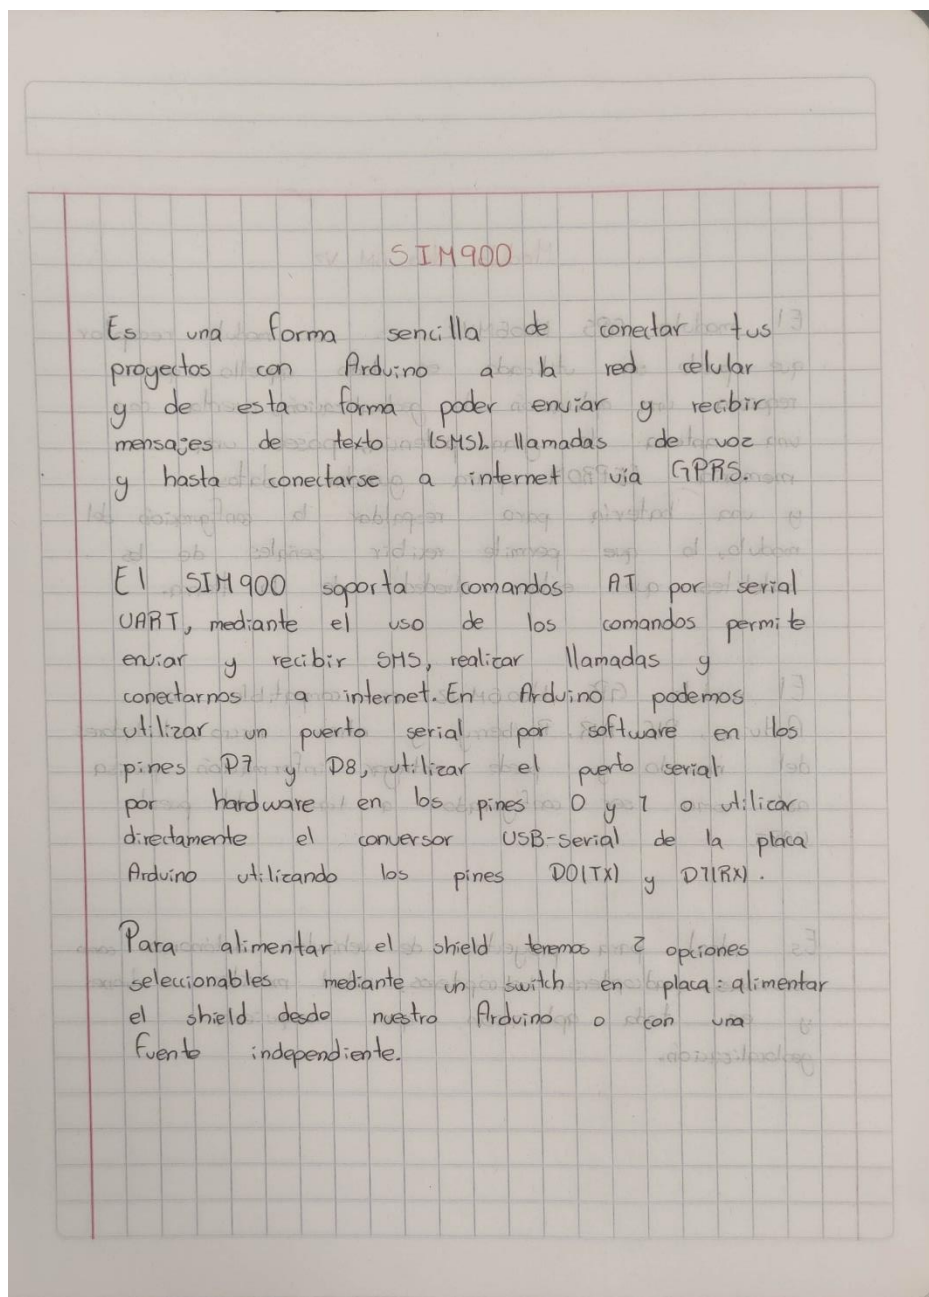 SIM900
Es una forma sencilla de conectar tus
proyectos con Arduino a la red celular
y de esta forma poder enviar y recibir
mensajes de texto (SMS), llamadas de voz
y hasta conectarse a internet via GPRS.
El SIM900 soporta comandos AT por serial
UART, mediante el uso de los comandos permite
enviar y recibir SMS, realizar llamadas y
conectarnos a internet. En Arduino podemos
utilizar un puerto serial por software en los
pines D7 y D8, utilizar el puerto serial
por hardware en los pines 0 y 1 o utilizar
directamente el conversor USB-Serial de la placa
Arduino utilizando los pines D0(TX) y D1(RX).
Para alimentar el shield teremos 2 opciones
seleccionables mediante un switch en placa: alimentar
el shield desde nuestro Arduino o con una
fuente independiente.